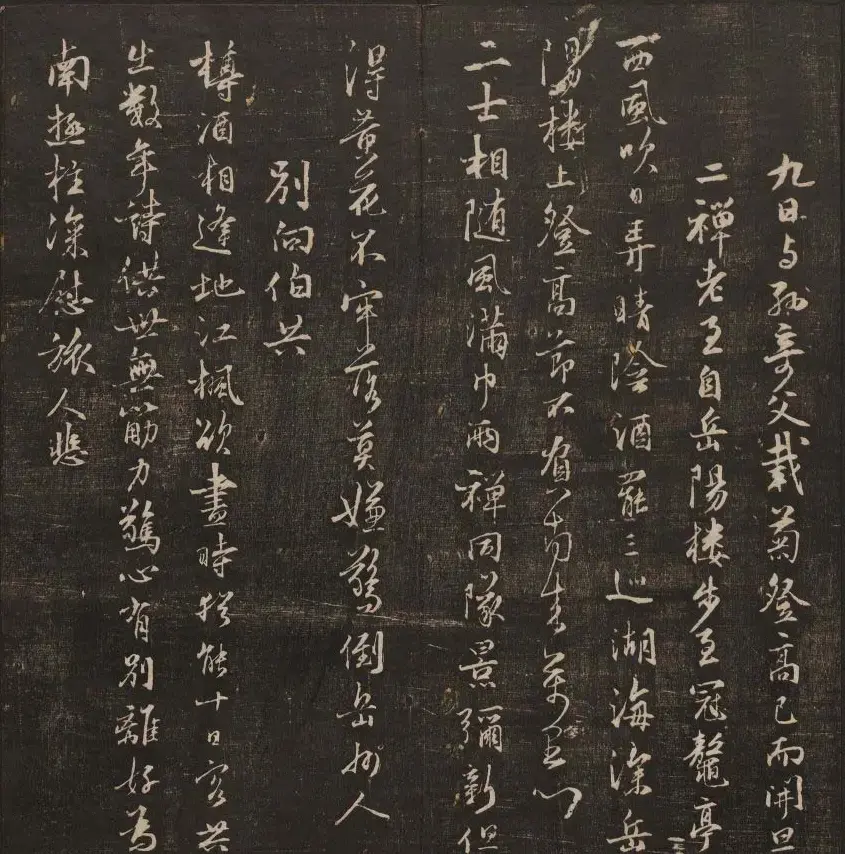 九日与孫奇父載菊登高已而開旦
二禪老至自岳陽楼步至冠鼇亭二
西風吹日弄晴陰酒罷三巡湖海深岳
陽楼上登高節不負南来萬里心
二士相随風滿巾兩禪同隊景彌新但
得黄花不牢落莫嫌驚倒岳州人
別向伯共
樽酒相逢地江楓欲盡時猶能十日客共
出數年詩供世無筋力驚心有別離好為
南極柱深慰旅人悲